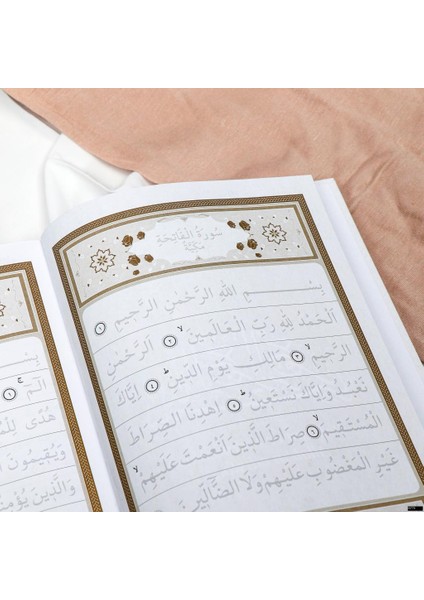 سُورَةُ الْفَاتِحَةِ
مَكِّيَّةٌ
بِسْمِ اللهِ الرَّحْمٰنِ الرَّحِيمِ ١
اَلْحَمْدُ لِلّٰهِ رَبِّ الْعَالَمِينَۙ ٢ اَلرَّحْمٰنِ
الرَّحِيمِۙ ٣ مَالِكِ يَوْمِ الدِّينِۜ ٤ اِيَّاكَ
نَعْبُدُ وَاِيَّاكَ نَسْتَعِينُۜ ٥ اِهْدِنَا الصِّرَاطَ
الْمُسْتَقِيمَۙ ٦ صِرَاطَ الَّذِينَ اَنْعَمْتَ عَلَيْهِمْۙ
غَيْرِ الْمَغْضُوبِ عَلَيْهِمْ وَلَا الضَّالِّينَ
بِسْـ
الٓمٓۚ ١
هُدًى لِلْمُ
وَيُقِيمُونَ
وَالَّذِينَ يُؤْمِ